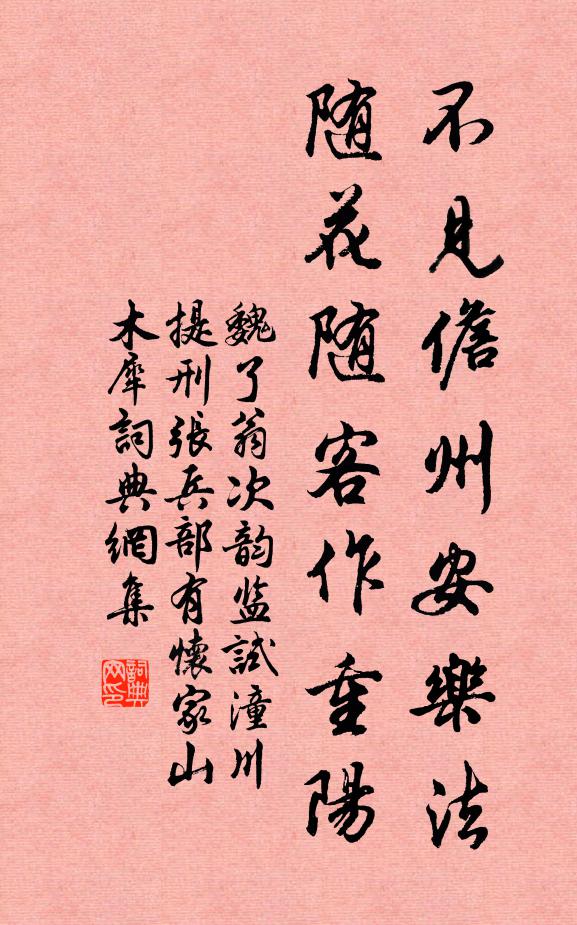 不见儋州安樂法
随花随客作重陽
魏了翁次韵监試潼川
提刑張兵部有懷家山
木犀詞典網集
詞典网印